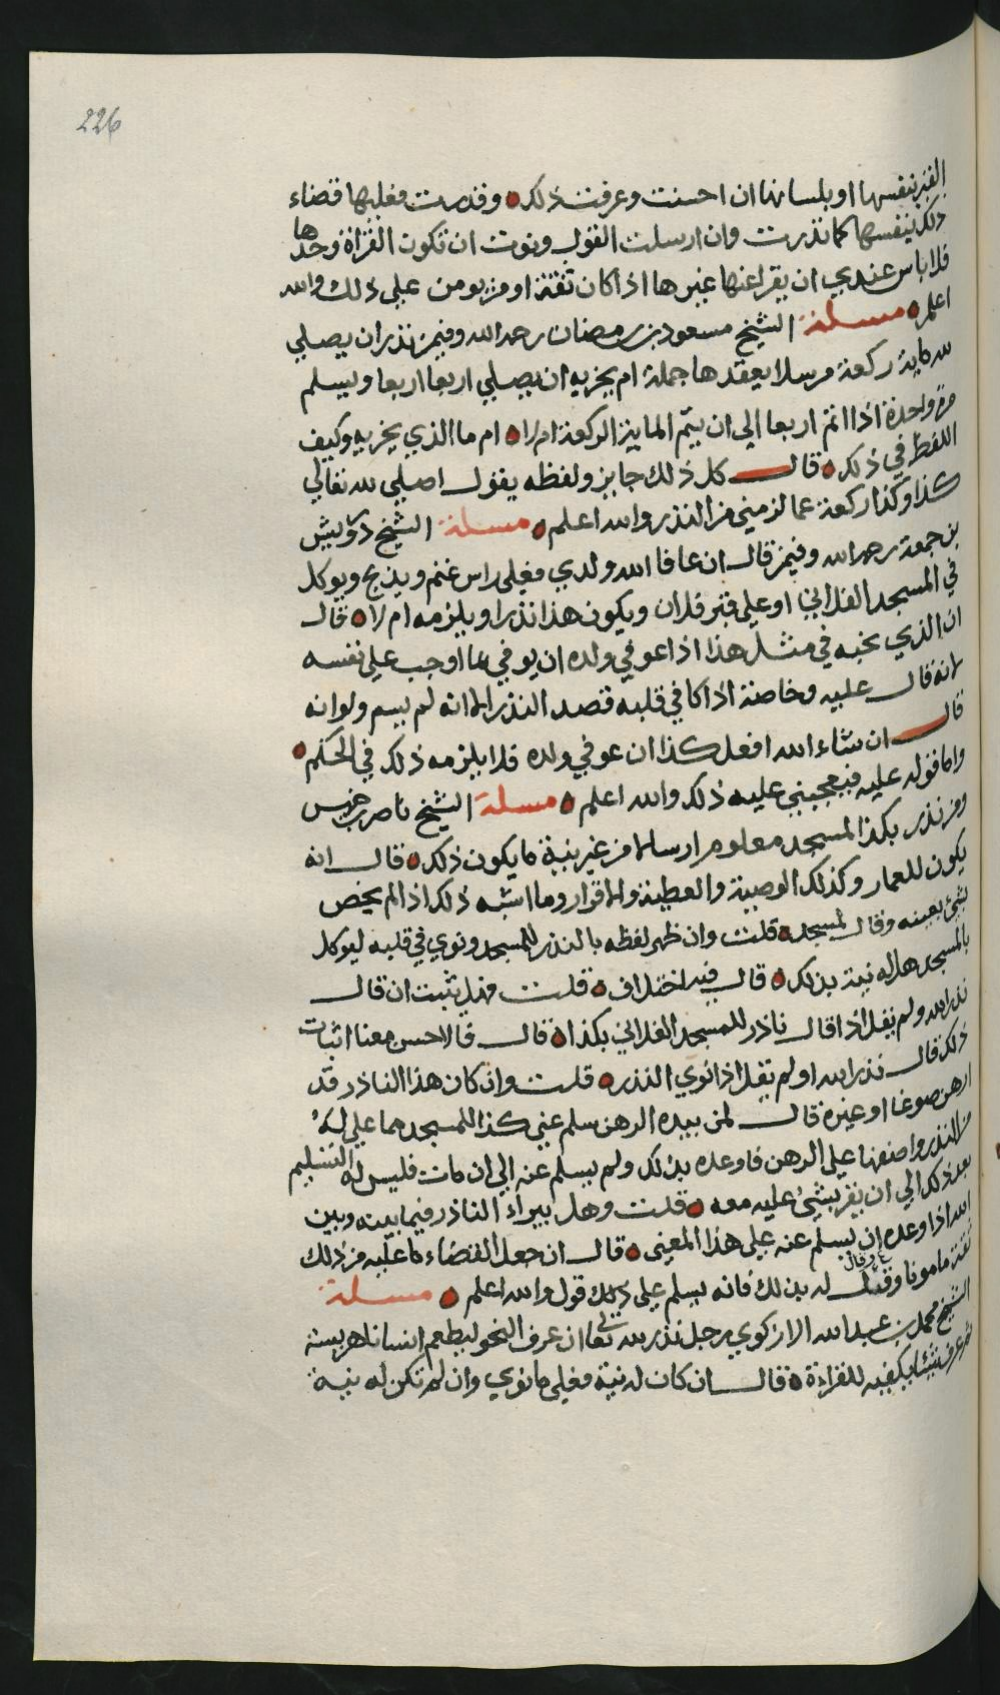 226
القبر بنفسها او بلسانها ان احسنت وعرفت ذلك وقدرت فعليها قضاء
ذلك بنفسها كما نذرت وان ارسلت القول ونوت ان تكون القراة وحدها
فلا باس عندي ان يقرا عنها غيرها اذا كان ثقة او من يومن على ذلك والله
اعلم مسئلة الشيخ مسعود بن رمضان رحمه الله وفيمن نذر ان يصلي
لله ماية ركعة مرسلا يعقدها جملة ام يجزيه ان يصلي اربعا اربعا ويسلم
مرة واحدة اذا اتم اربعا الى ان يتم الماية الركعة ام لا ام ما الذي يجزيه وكيف
اللفظ في ذلك قال كل ذلك جايز ولفظه يقول اصلي لله تعالى
كذا وكذا ركعة عما لزمني من النذر والله اعلم مسئلة الشيخ درويش
بن جمعة رحمه الله وفيمن قال ان عافا الله ولدي فعلي راس غنم ويذبح ويوكل
في المسجد الفلاني او على قبر فلان ويكون هذا نذرا ويلزمه ام لا قال
ان الذي نحبه في مثل هذا اذا عوفي ولده ان يوفي بما اوجب على نفسه
لانه قال عليه وخاصة اذا كا في قلبه قصد النذر الا انه لم يسم ولو انه
قال ان شاء الله افعل كذا ان عوفي ولده فلا يلزمه ذلك في الحكم
واما قوله عليه فيعجبني عليه ذلك والله اعلم مسئلة الشيخ ناصر بن خميس
ومن نذر بكذا لمسجد معلوم ارسالا من غير نية ما يكون ذلك قال انه
يكون للعمار وكذلك الوصية والعطية والاقرار وما اشبه ذلك اذا لم يخص
بشئ بعينه وقال لمسجد قلت وان ظهر لفظه بالنذر للمسجد ونوى في قلبه ليوكل
بالمسجد هل له نية بذلك قال فيه اختلاف قلت فهل يثبت ان قال
نذر الله ولم يقل اذا قال ناذر للمسجد الفلاني بكذا قال فالاحسن معنا اثبات
ذلك قال نذر الله او لم يقل اذا نوى النذر قلت وان كان هذا الناذر قد
ارهن صوغا او غيره قال لمن بيده الرهن سلم عني كذا للمسجد مما علي له
من النذر واضفها على الرهن فاوعده بذلك ولم يسلم عنه الى ان مات فليس له التسليم
بعد ذلك الى ان يقر بشئ عليه معه قلت وهل يبراء الناذر فيما بينه وبين
الله اذا وعده ان يسلم عنه على هذا المعنى قال ان جعل القضاء ما عليه من ذلك
ثقة مامونا وقبل له بذلك فانه يسلم على ذلك قول والله اعلم مسئلة
الشيخ محمد بن عبد الله الازكوي رجل نذر لله تعالى ان عرف النحو ليطعم انسانا هريسة
ثم عرف شيئا يكفيه للقراءة قال ان كان له نية فعلى ما نوى وان لم تكن له نية